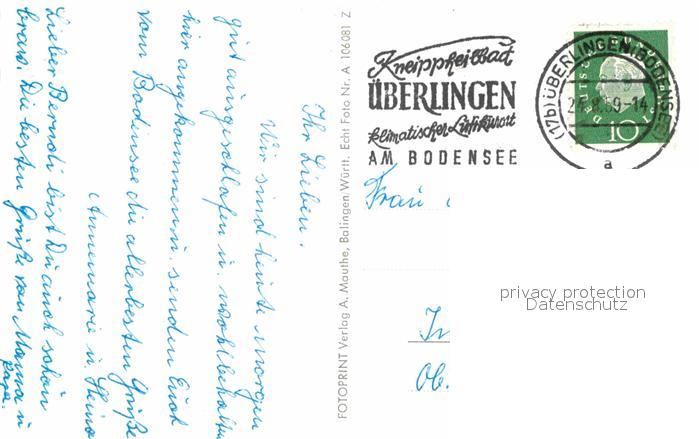 Ihr Lieben.
Wir sind heute Morgen
gut ausgeschlafen u. wohlbehalten
hier angekommen u. senden Euch
vom Bodensee die allerbesten Grüße
Annemarie u. Heino
Lieber Berndi bist Du auch schön
brav. Die besten Grüße von Mama u
Papa.
FOTOPRINT Verlag A. Mauthe, Balingen Württ. Echt Foto Nr. A 106081 Z
Kneippheilbad
ÜBERLINGEN
klimatischer Luftkurort
AM BODENSEE
(17b) ÜBERLINGEN (BODENSEE)
59-14
a
10
Frau
In
Ob.
privacy protection
Datenschutz